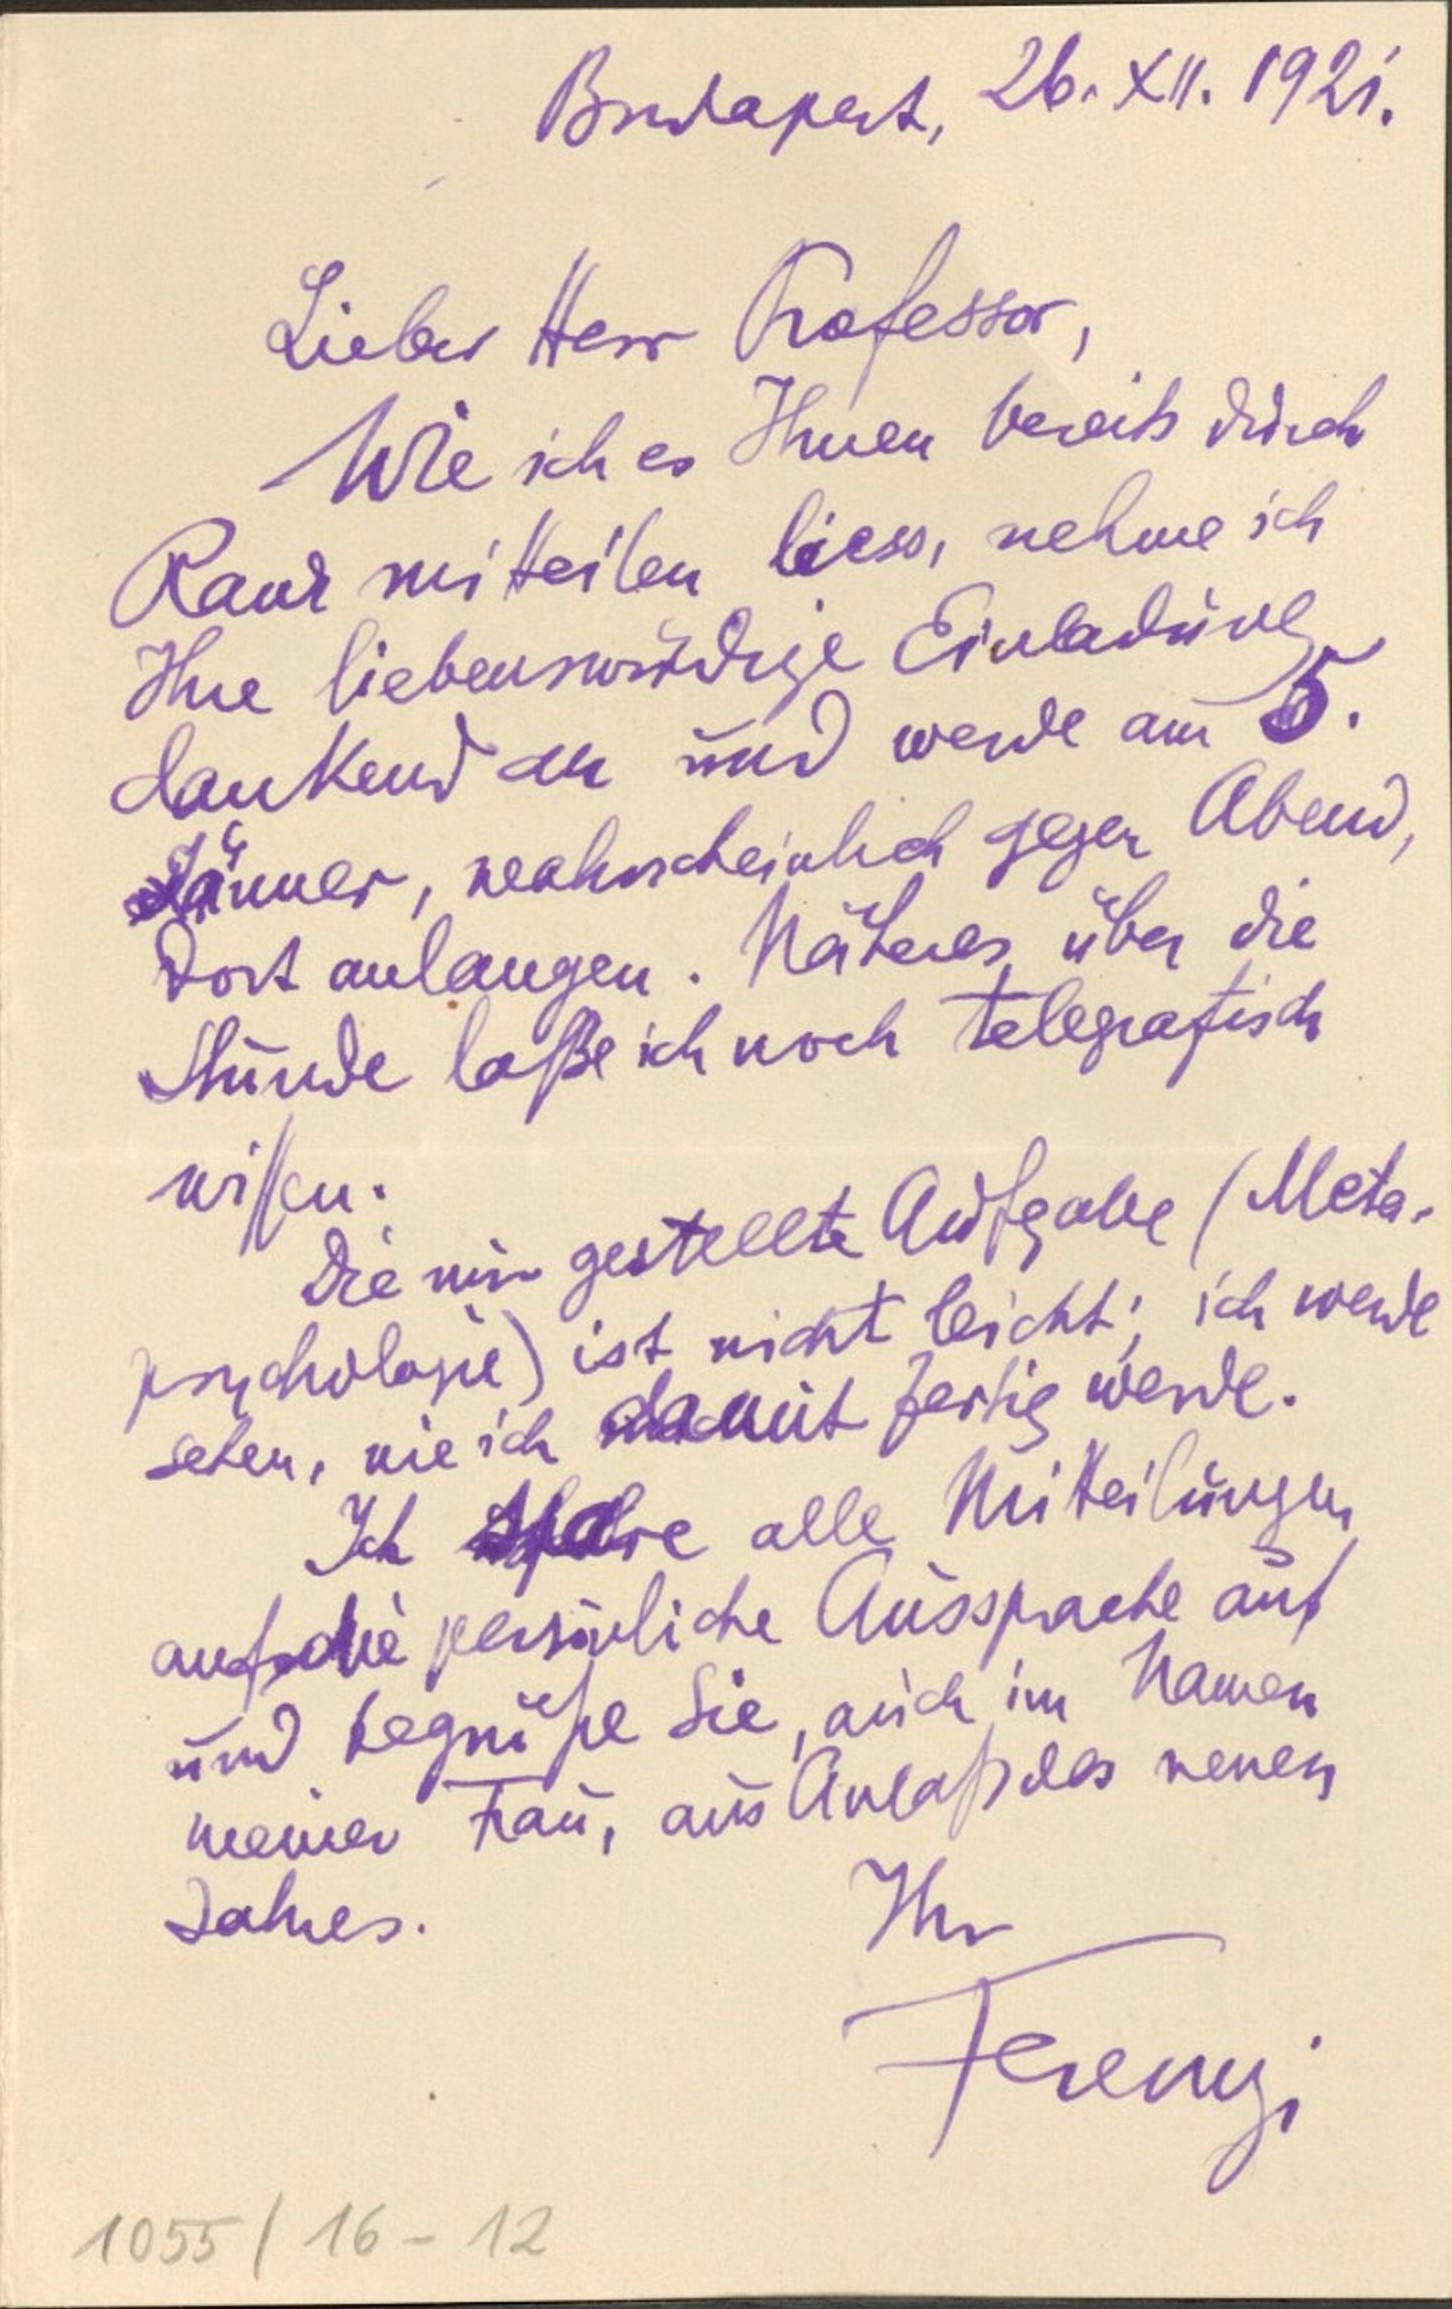 Budapest, 26. XII. 1921.
Lieber Herr Professor,
Wie ich es Ihnen bereits durch
Rank mitteilen liess, nehme ich
Ihre liebenswürdige Einladung
dankend an und werde am 5.
Jänner, wahrscheinlich gegen Abend,
dort anlangen. Näheres über die
Stunde laße ich noch telegrafisch
wissen.
Die mir gestellte Aufgabe (Meta-
psychologie) ist nicht leicht; ich werde
sehen, wie ich damit fertig werde.
Ich spare alle Mitteilungen
auf die persönliche Aussprache auf
und begrüße Sie, auch im Namen
meiner Frau, aus Anlaß des neuen
Jahres.
Ihr
Ferenczi
1055 / 16 - 12